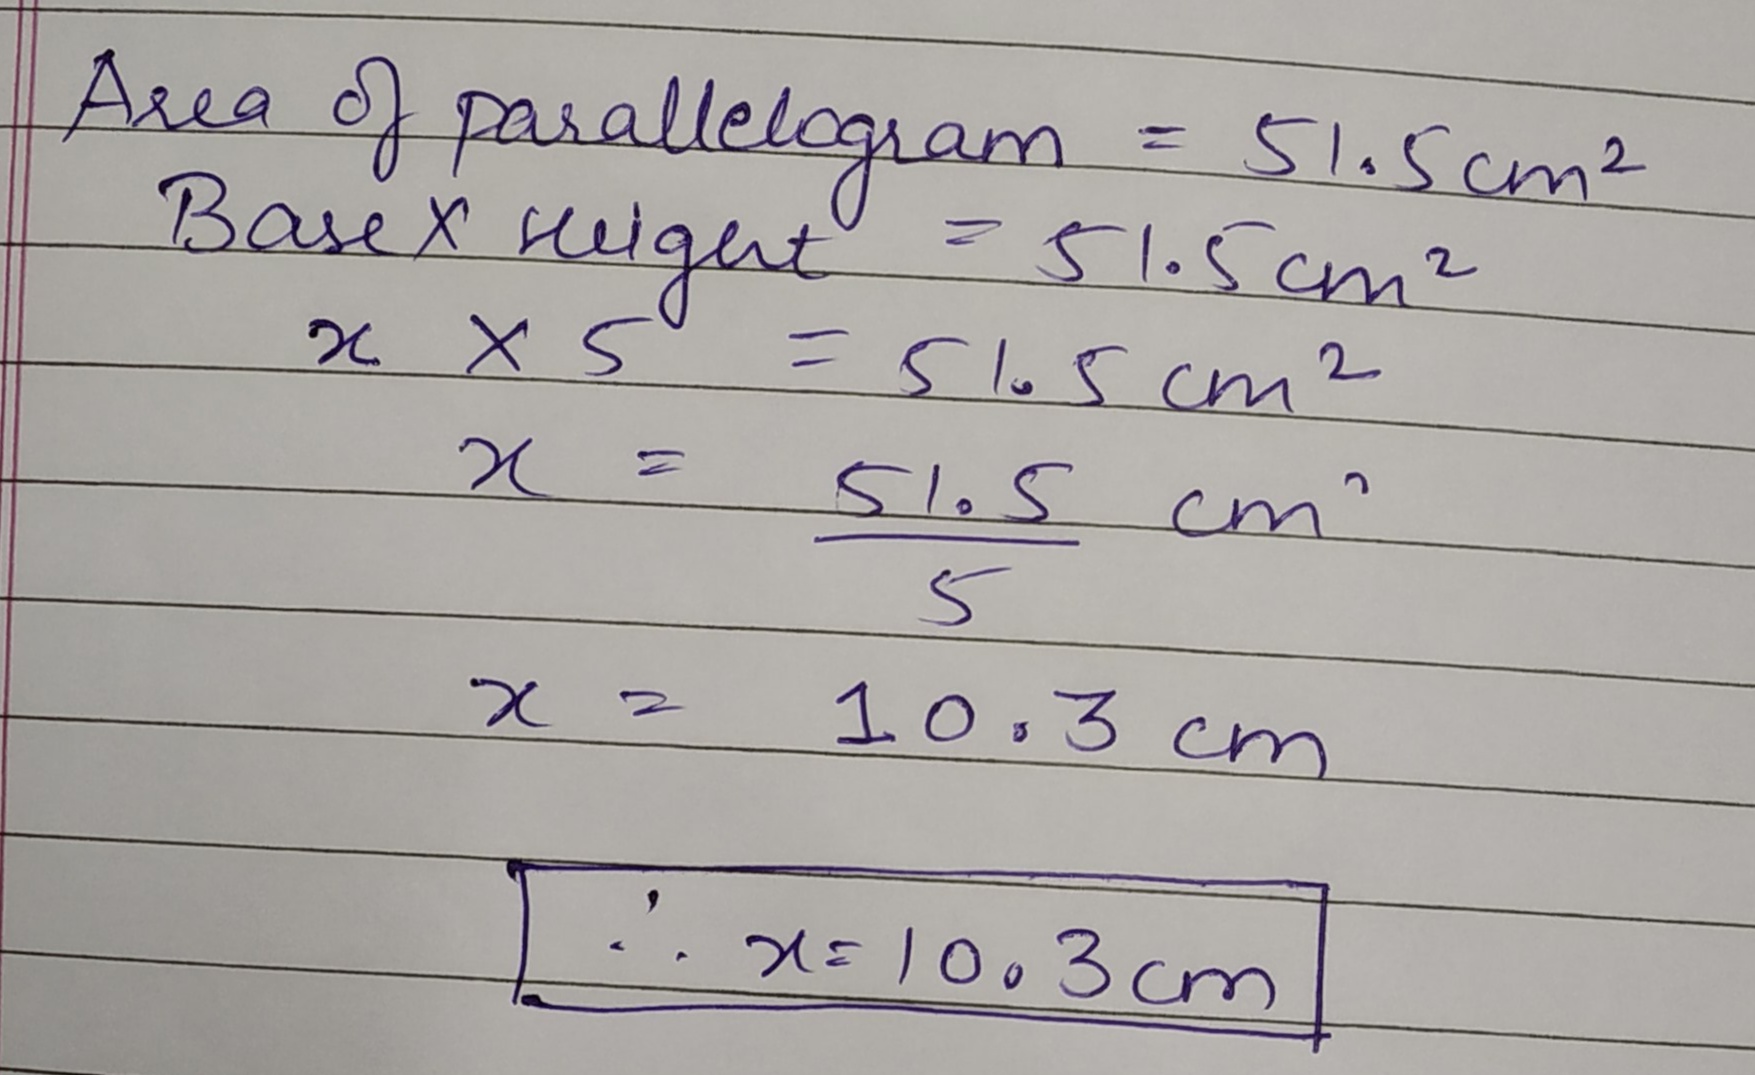 Area of parallelogram = 51.5cm²
Base X Height = 51.5cm²
x X 5 = 51.5 cm²
x = 51.5 cm²
5
x = 10.3 cm
∴ x=10.3cm